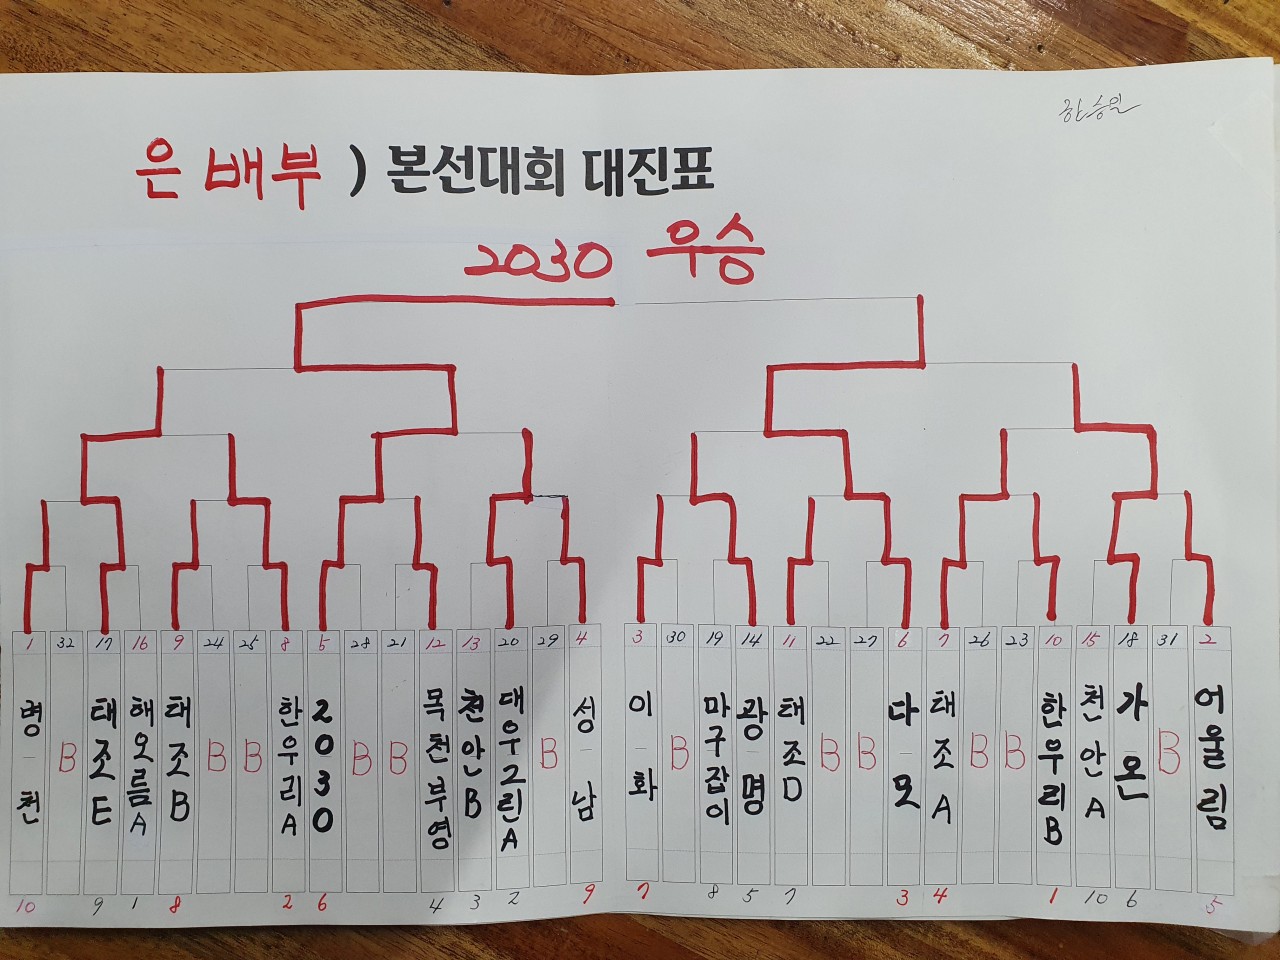 한승일
은배부 ) 본선대회 대진표
2030 우승
1 32 17 16 9 24 25 8 5 28 21 12 13 20 29 4 3 30 19 14 11 22 27 6 7 26 23 10 15 18 31 2
병천 B 태조E 해오름A 태조B B B 한우리A 2030 B B 목천부영 천안B 대우그린A B 성남 이화 B 마구잡이 광명 태조D B B 다모 태조A B B 한우리B 천안A 가온 B 어울림
10 9 1 8 2 6 4 3 2 9 7 8 5 7 3 4 1 10 6 5